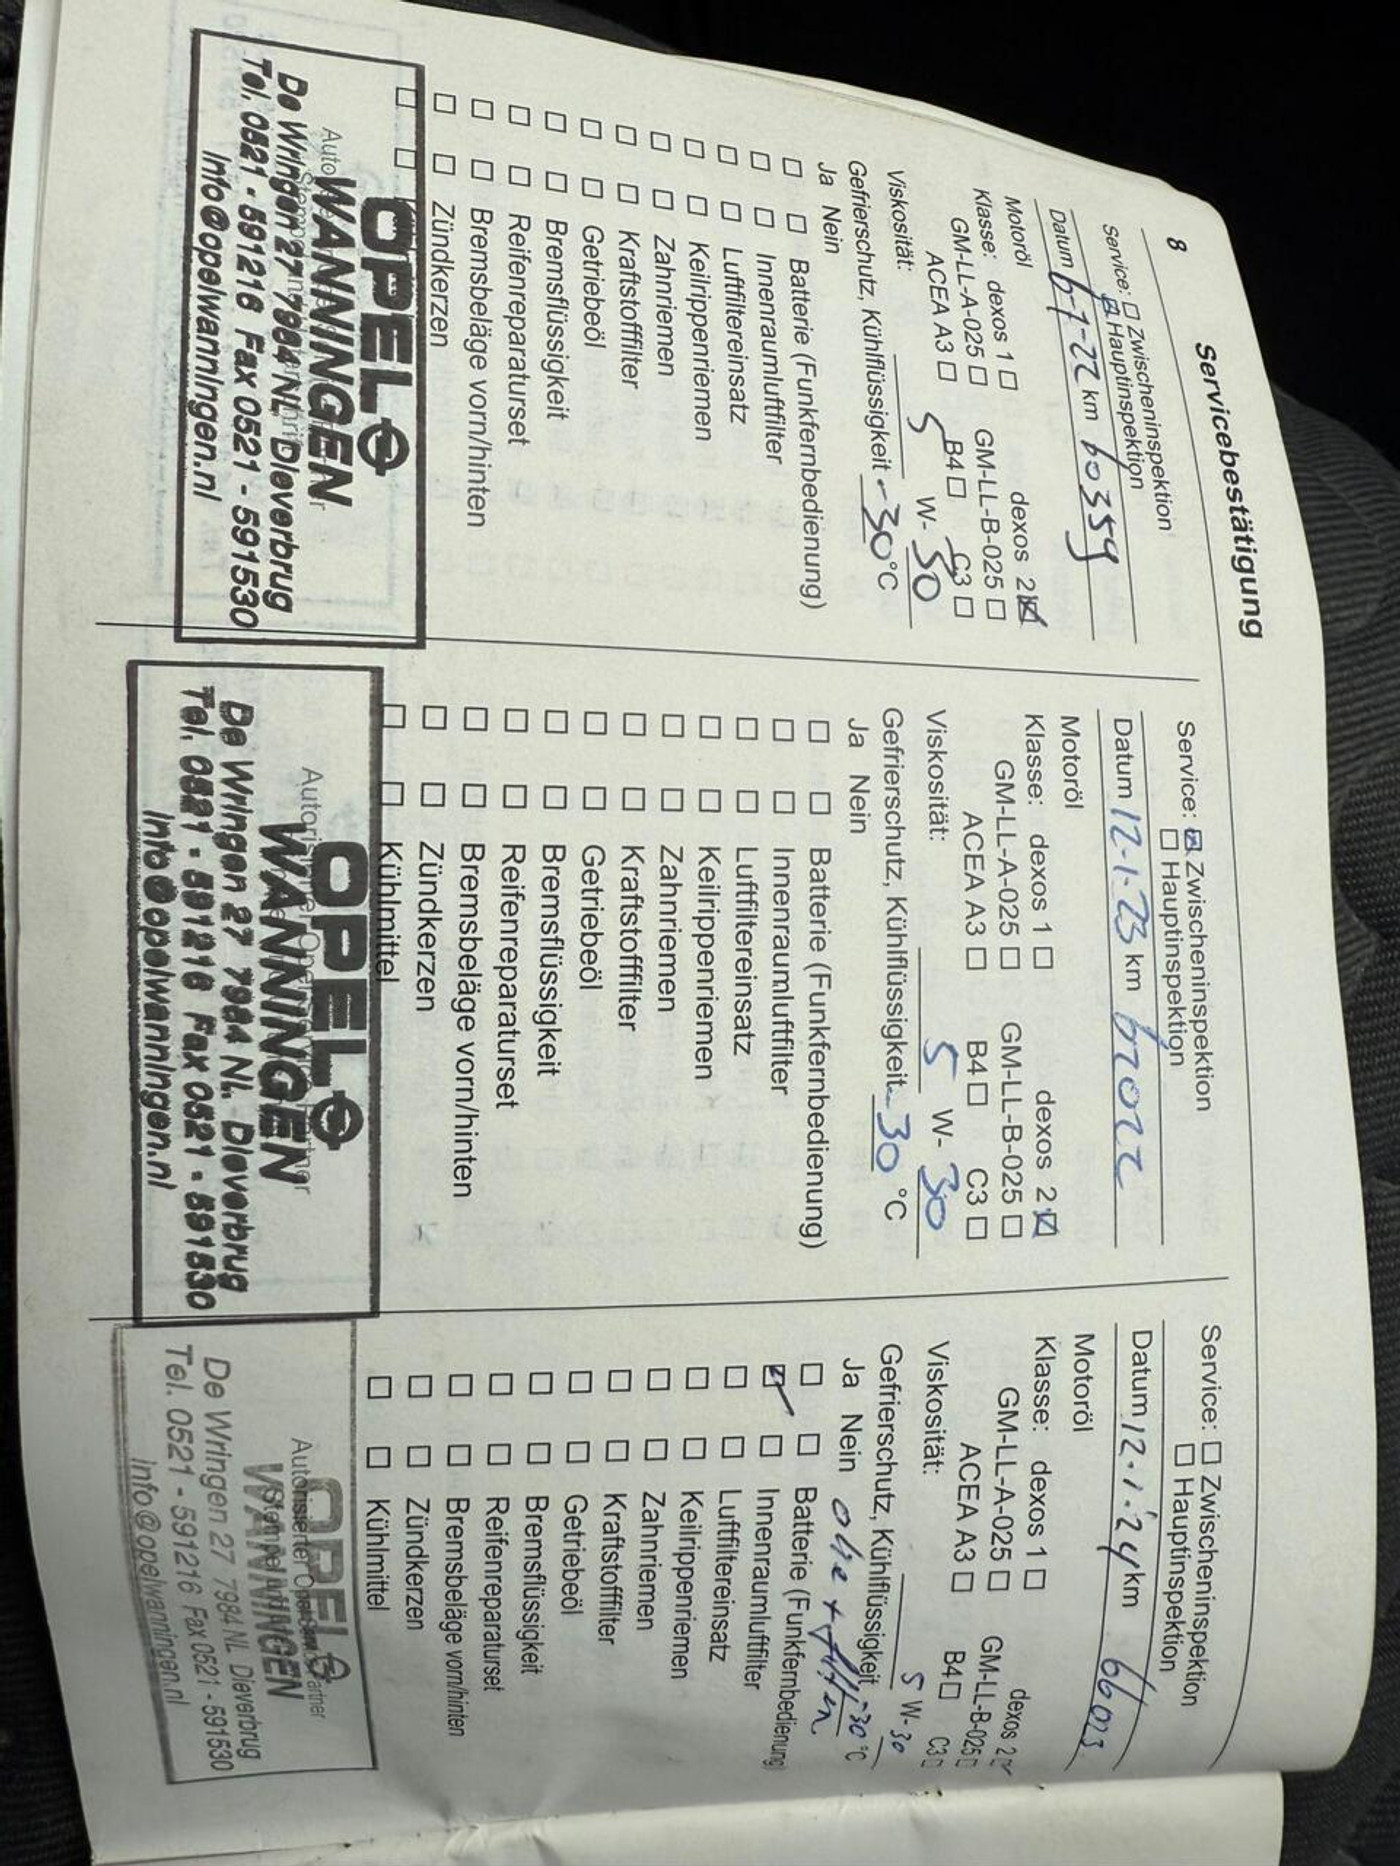 8
Servicebestätigung
Service: ☐ Zwischeninspektion
☒ Hauptinspektion
Datum 6-7-22 km 60359
Motoröl
Klasse: dexos 1 ☐ dexos 2 ☒
GM-LL-A-025 ☐ GM-LL-B-025 ☐
ACEA A3 ☐ B4 ☐ C3 ☐
Viskosität: 5 W- 30
Gefrierschutz, Kühlflüssigkeit -30 °C
Ja Nein
☐ ☐ Batterie (Funkfernbedienung)
☐ ☐ Innenraumluftfilter
☐ ☐ Luftfiltereinsatz
☐ ☐ Keilrippenriemen
☐ ☐ Zahnriemen
☐ ☐ Kraftstofffilter
☐ ☐ Getriebeöl
☐ ☐ Bremsflüssigkeit
☐ ☐ Reifenreparaturset
☐ ☐ Bremsbeläge vorn/hinten
☐ ☐ Zündkerzen
☐ ☐
OPEL
WANNINGEN
De Wringen 27 7984 NL Dieverbrug
Tel. 0521 - 591216 Fax 0521 - 591530
info@opelwanningen.nl
Service: ☒ Zwischeninspektion
☐ Hauptinspektion
Datum 12-1-23 km
Motoröl
Klasse: dexos 1 ☐ dexos 2 ☒
GM-LL-A-025 ☐ GM-LL-B-025 ☐
ACEA A3 ☐ B4 ☐ C3 ☐
Viskosität: 5 W- 30
Gefrierschutz, Kühlflüssigkeit -30 °C
Ja Nein
☐ ☐ Batterie (Funkfernbedienung)
☐ ☐ Innenraumluftfilter
☐ ☐ Luftfiltereinsatz
☐ ☐ Keilrippenriemen
☐ ☐ Zahnriemen
☐ ☐ Kraftstofffilter
☐ ☐ Getriebeöl
☐ ☐ Bremsflüssigkeit
☐ ☐ Reifenreparaturset
☐ ☐ Bremsbeläge vorn/hinten
☐ ☐ Zündkerzen
☐ ☐ Kühlmittel
OPEL
WANNINGEN
De Wringen 27 7984 NL Dieverbrug
Tel. 0521 - 591216 Fax 0521 - 591530
info@opelwanningen.nl
Service: ☐ Zwischeninspektion
☐ Hauptinspektion
Datum 12.1.24 km 66023
Motoröl
Klasse: dexos 1 ☐ dexos 2 ☑
GM-LL-A-025 ☐ GM-LL-B-025 ☐
ACEA A3 ☐ B4 ☐ C3 ☐
Viskosität: 5 W- 30
Gefrierschutz, Kühlflüssigkeit -30 °C
Ja Nein olie + filter
☐ ☐ Batterie (Funkfernbedienung)
☑ ☐ Innenraumluftfilter
☐ ☐ Luftfiltereinsatz
☐ ☐ Keilrippenriemen
☐ ☐ Zahnriemen
☐ ☐ Kraftstofffilter
☐ ☐ Getriebeöl
☐ ☐ Bremsflüssigkeit
☐ ☐ Reifenreparaturset
☐ ☐ Bremsbeläge vorn/hinten
☐ ☐ Zündkerzen
☐ ☐ Kühlmittel
OPEL
WANNINGEN
De Wringen 27 7984 NL Dieverbrug
Tel. 0521 - 591216 Fax 0521 - 591530
info@opelwanningen.nl